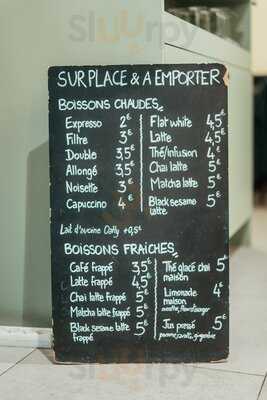 SUR PLACE & A EMPORTER
BOISSONS CHAUDES
Expresso 2€
Filtre 3€
Double 3,5€
Allongé 3,5€
Noisette 3€
Capuccino 4€
Flat white 4,5€
Latte 4,5€
Thé/infusion 4€
Chai latte 5€
Matcha latte 5€
Black sesame 5€
latte
Lait d'avoine Oatly +0,5€
BOISSONS FRAICHES
Café frappé 3,5€
Latte frappé 4,5€
Chai latte frappé 5€
Matcha latte frappé 5€
Black sesame latte 5€
frappé
Thé glacé chai 5€
maison
Limonade 4€
maison
menthe, fleur d'oranger
Jus pressé 5€
pomme, carotte, gingembre